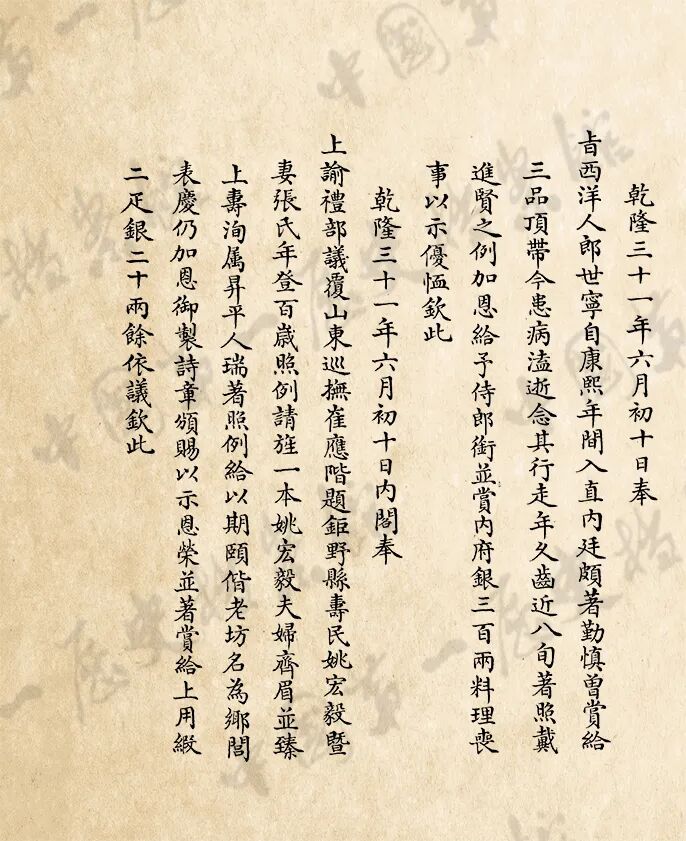 乾隆三十一年六月初十日奉
旨西洋人郎世寧自康熙年間入直內廷頗著勤慎曾賞給
三品頂帶今患病溘逝念其行走年久齒近八旬著照戴
進賢之例加恩給予侍郎銜並賞內府銀三百兩料理喪
事以示優恤欽此
乾隆三十一年六月初十日內閣奉
上諭禮部議覆山東巡撫崔應階題鉅野縣壽民姚宏毅暨
妻張氏年登百歲照例請旌一本姚宏毅夫婦齊眉並臻
上壽洵属昇平人瑞著照例給以期頤偕老坊名為鄉閭
表慶仍加恩御製詩章頒賜以示恩榮並著賞給上用緞
二疋銀二十兩餘依議欽此